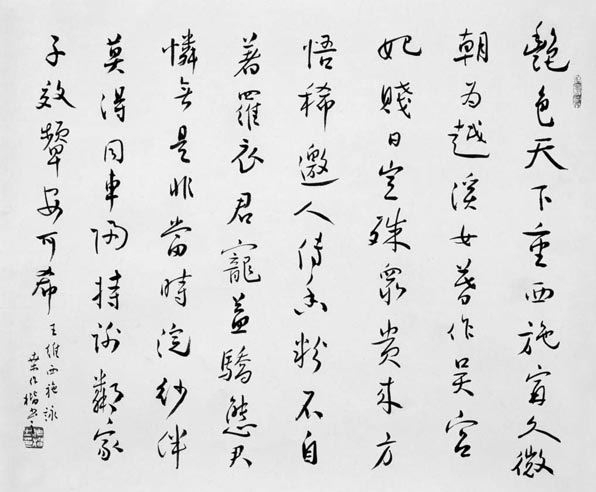 艷色天下重西施甯久微
朝為越溪女暮作吳宮
妃賤日豈殊眾貴來方
悟稀邀人傅香粉不自
著羅衣君寵益驕態君
憐無是非當時浣紗伴
莫得同車歸持謝鄰家
子效顰安可希
王維西施詠